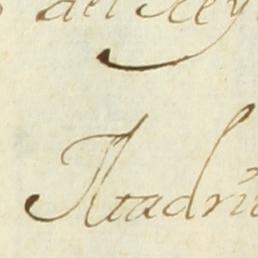 del Rey
Madri